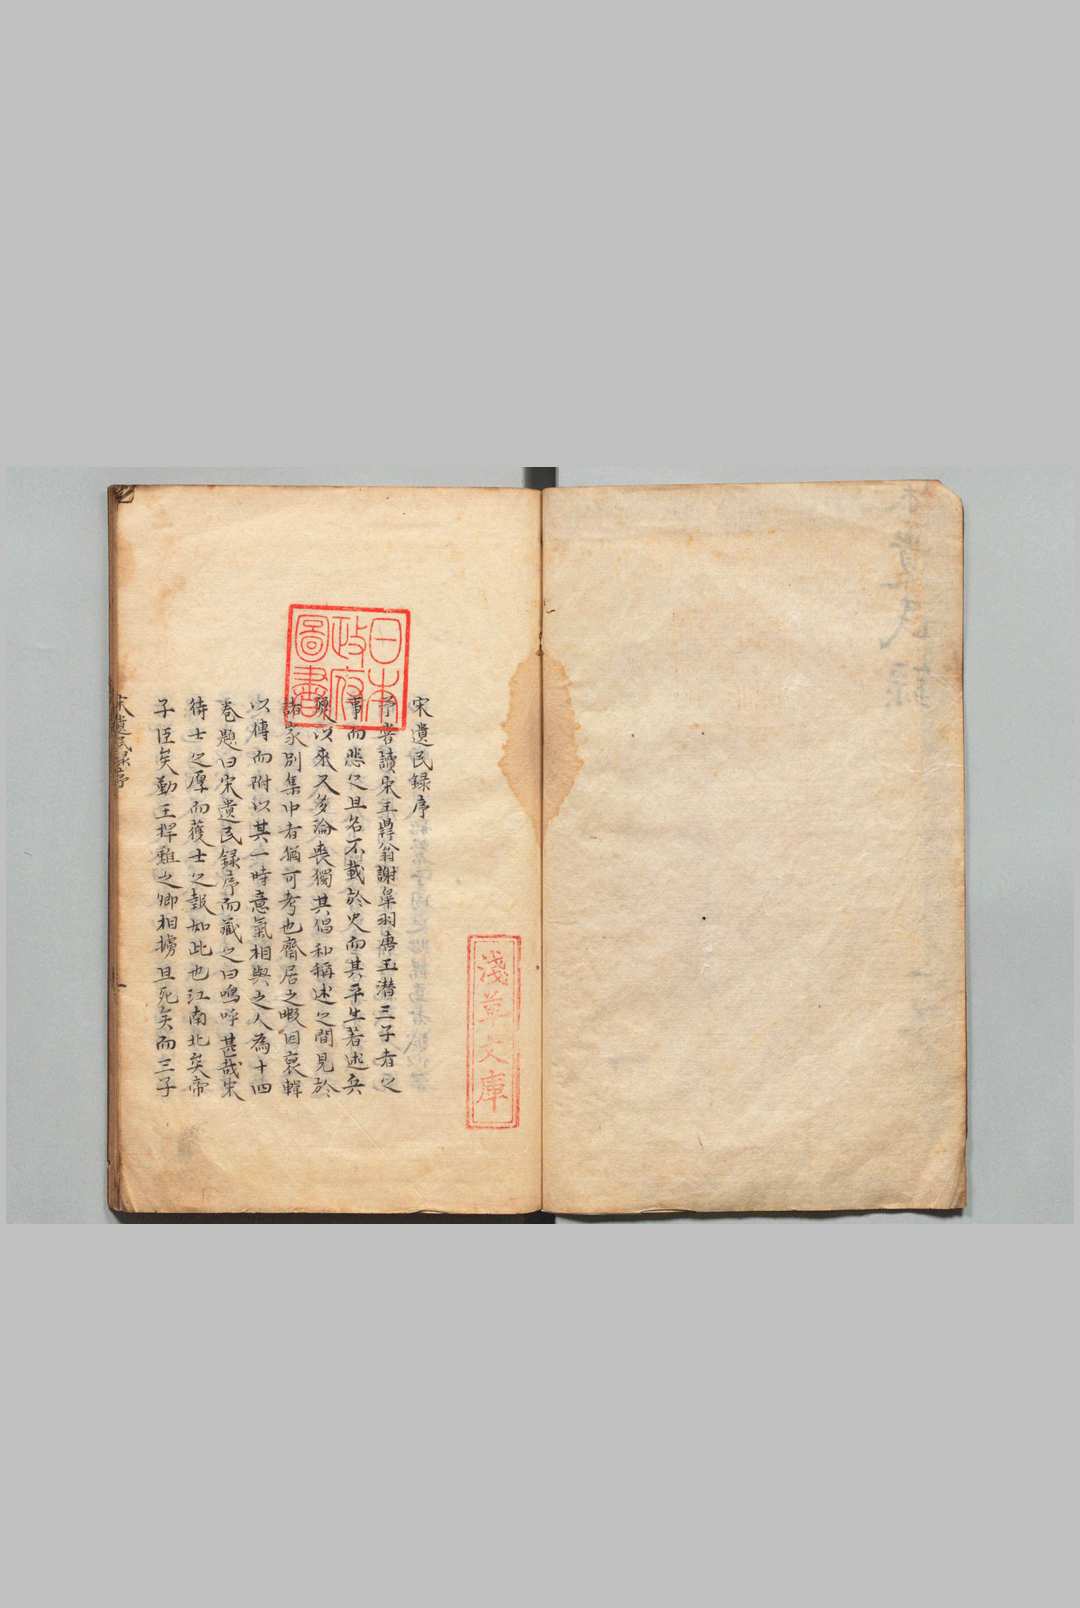 宋遺民録序
予嘗讀宋王鼎翁謝皐羽唐玉潛三子者之
事而悲之且名不載於史而其平生著述兵
燹以來又多淪喪獨其倡和稱述之間見於
諸家別集中者猶可考也齋居之暇因裒輯
以傳而附以其一時意氣相與之人為十四
巻題曰宋遺民録序而藏之曰嗚呼甚哉宋
待士之厚而獲士之報如此也江南北矣帝
子臣矣勤王捍難之卿相擄且死矣而三子
宋遺民録序
一
日本
政府
圖書
淺草文庫